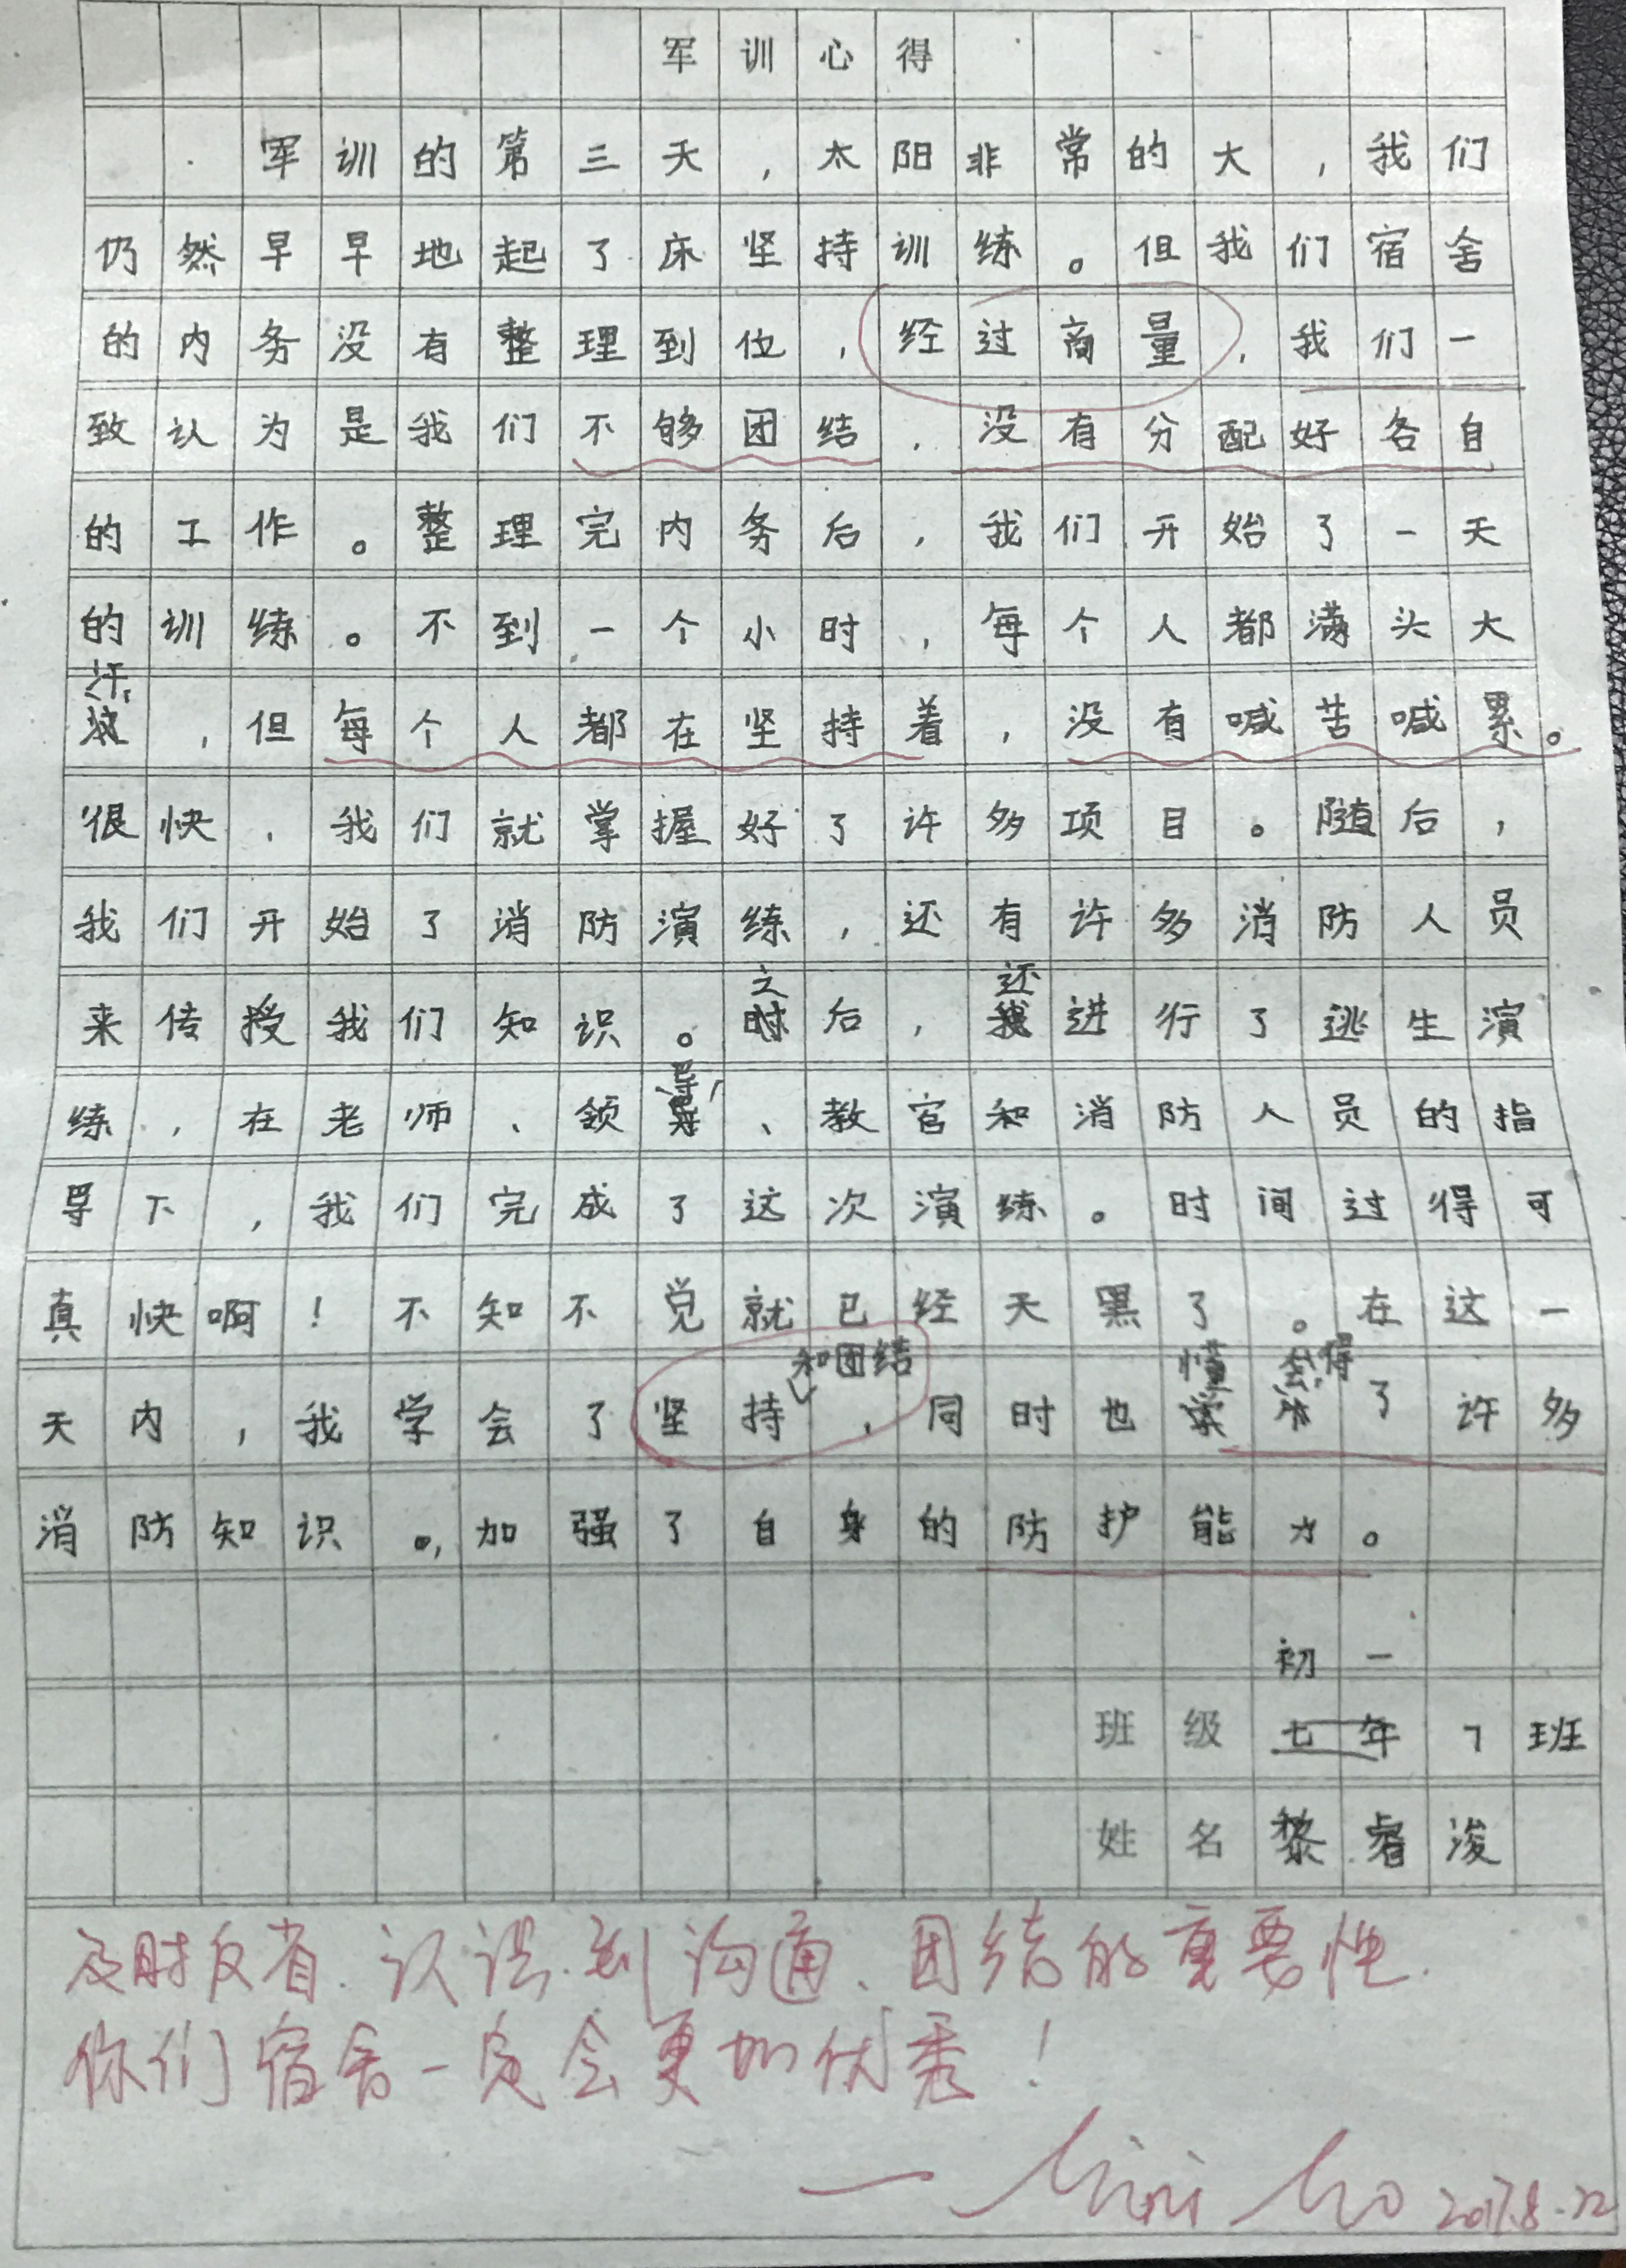 军训心得
军训的第三天，太阳非常的大，我们
仍然早早地起了床坚持训练。但我们宿舍
的内务没有整理到位，经过商量，我们一
致认为是我们不够团结，没有分配好各自
的工作。整理完内务后，我们开始了一天
的训练。不到一个小时，每个人都满头大
汗，但每个人都在坚持着，没有喊苦喊累。
很快，我们就掌握好了许多项目。随后，
我们开始了消防演练，还有许多消防人员
来传授我们知识。之后，还进行了逃生演
练，在老师、领导、教官和消防人员的指
导下，我们完成了这次演练。时间过得可
真快啊！不知不觉就已经天黑了。在这一
天内，我学会了坚持和团结，同时也懂得了许多
消防知识，加强了自身的防护能力。
初一
班级七年7班
姓名黎睿浚
及时反省、认识到沟通、团结的重要性.
你们宿舍一定会更加优秀！
2017.8.22